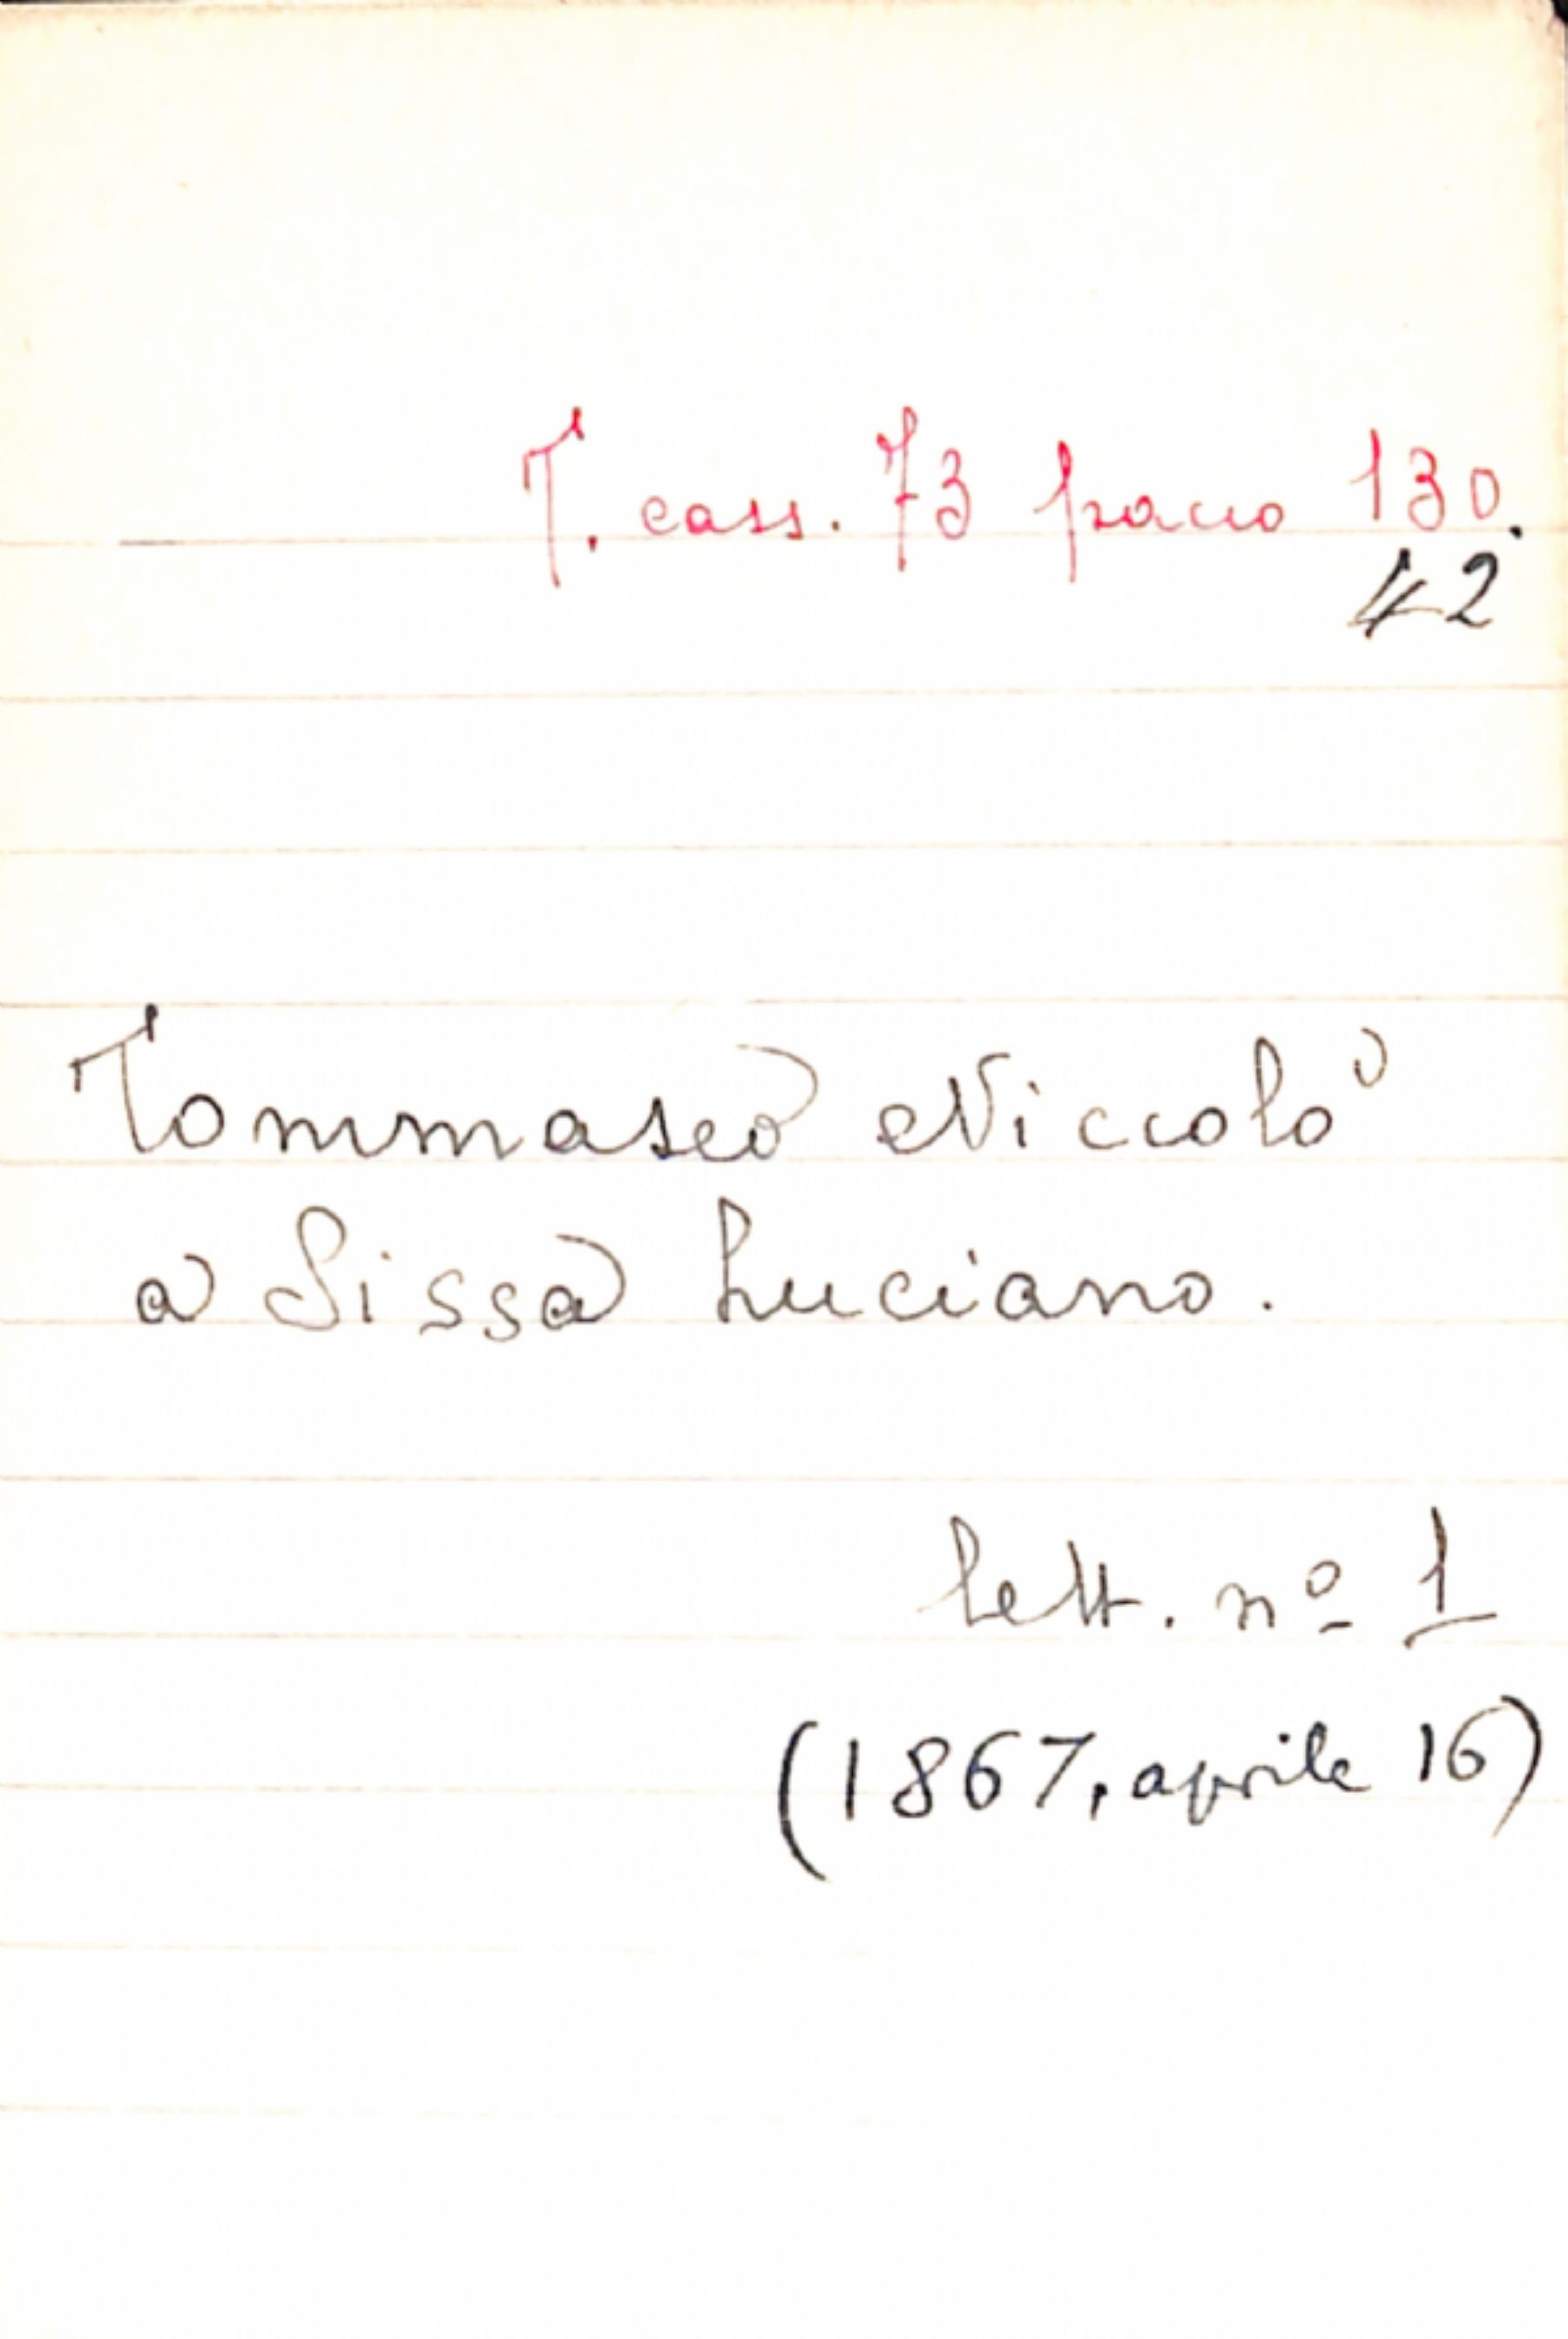 T. cass. 73 pacco 130.
42
Tommaseo Niccolò
a Sissa Luciano.
lett. nº 1
(1867, aprile 16)